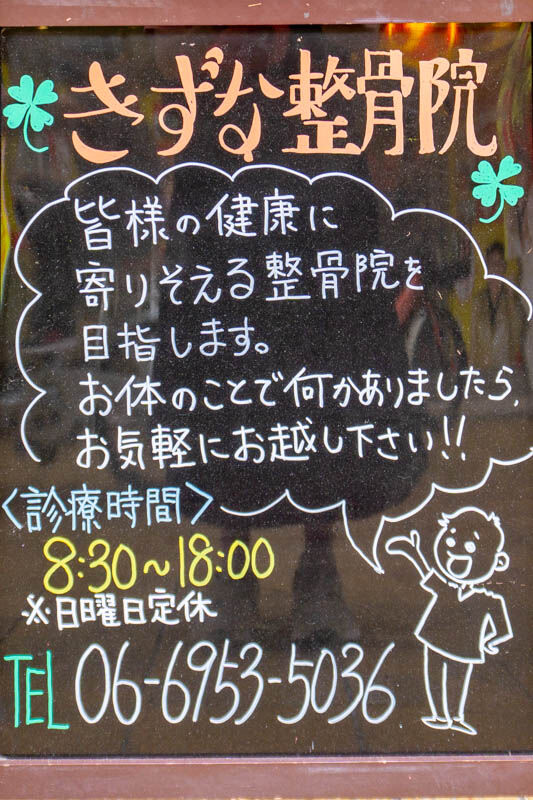 きずな整骨院
皆様の健康に
寄りそえる整骨院を
目指します。
お体のことで何かありましたら、
お気軽にお越し下さい!!
〈診療時間〉
8:30〜18:00
※日曜日定休
TEL 06-6953-5036